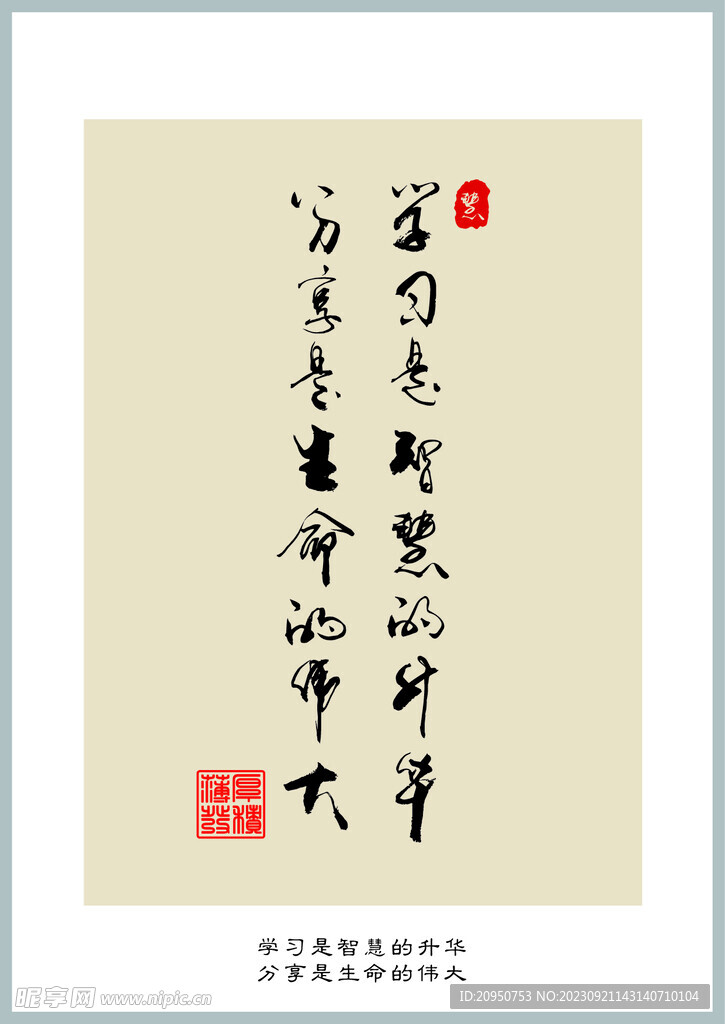 慧
学习是智慧的升华
分享是生命的伟大
厚积薄发
学习是智慧的升华
分享是生命的伟大
昵享网 www.nipic.cn
ID:20950753 NO:20230921143140710104